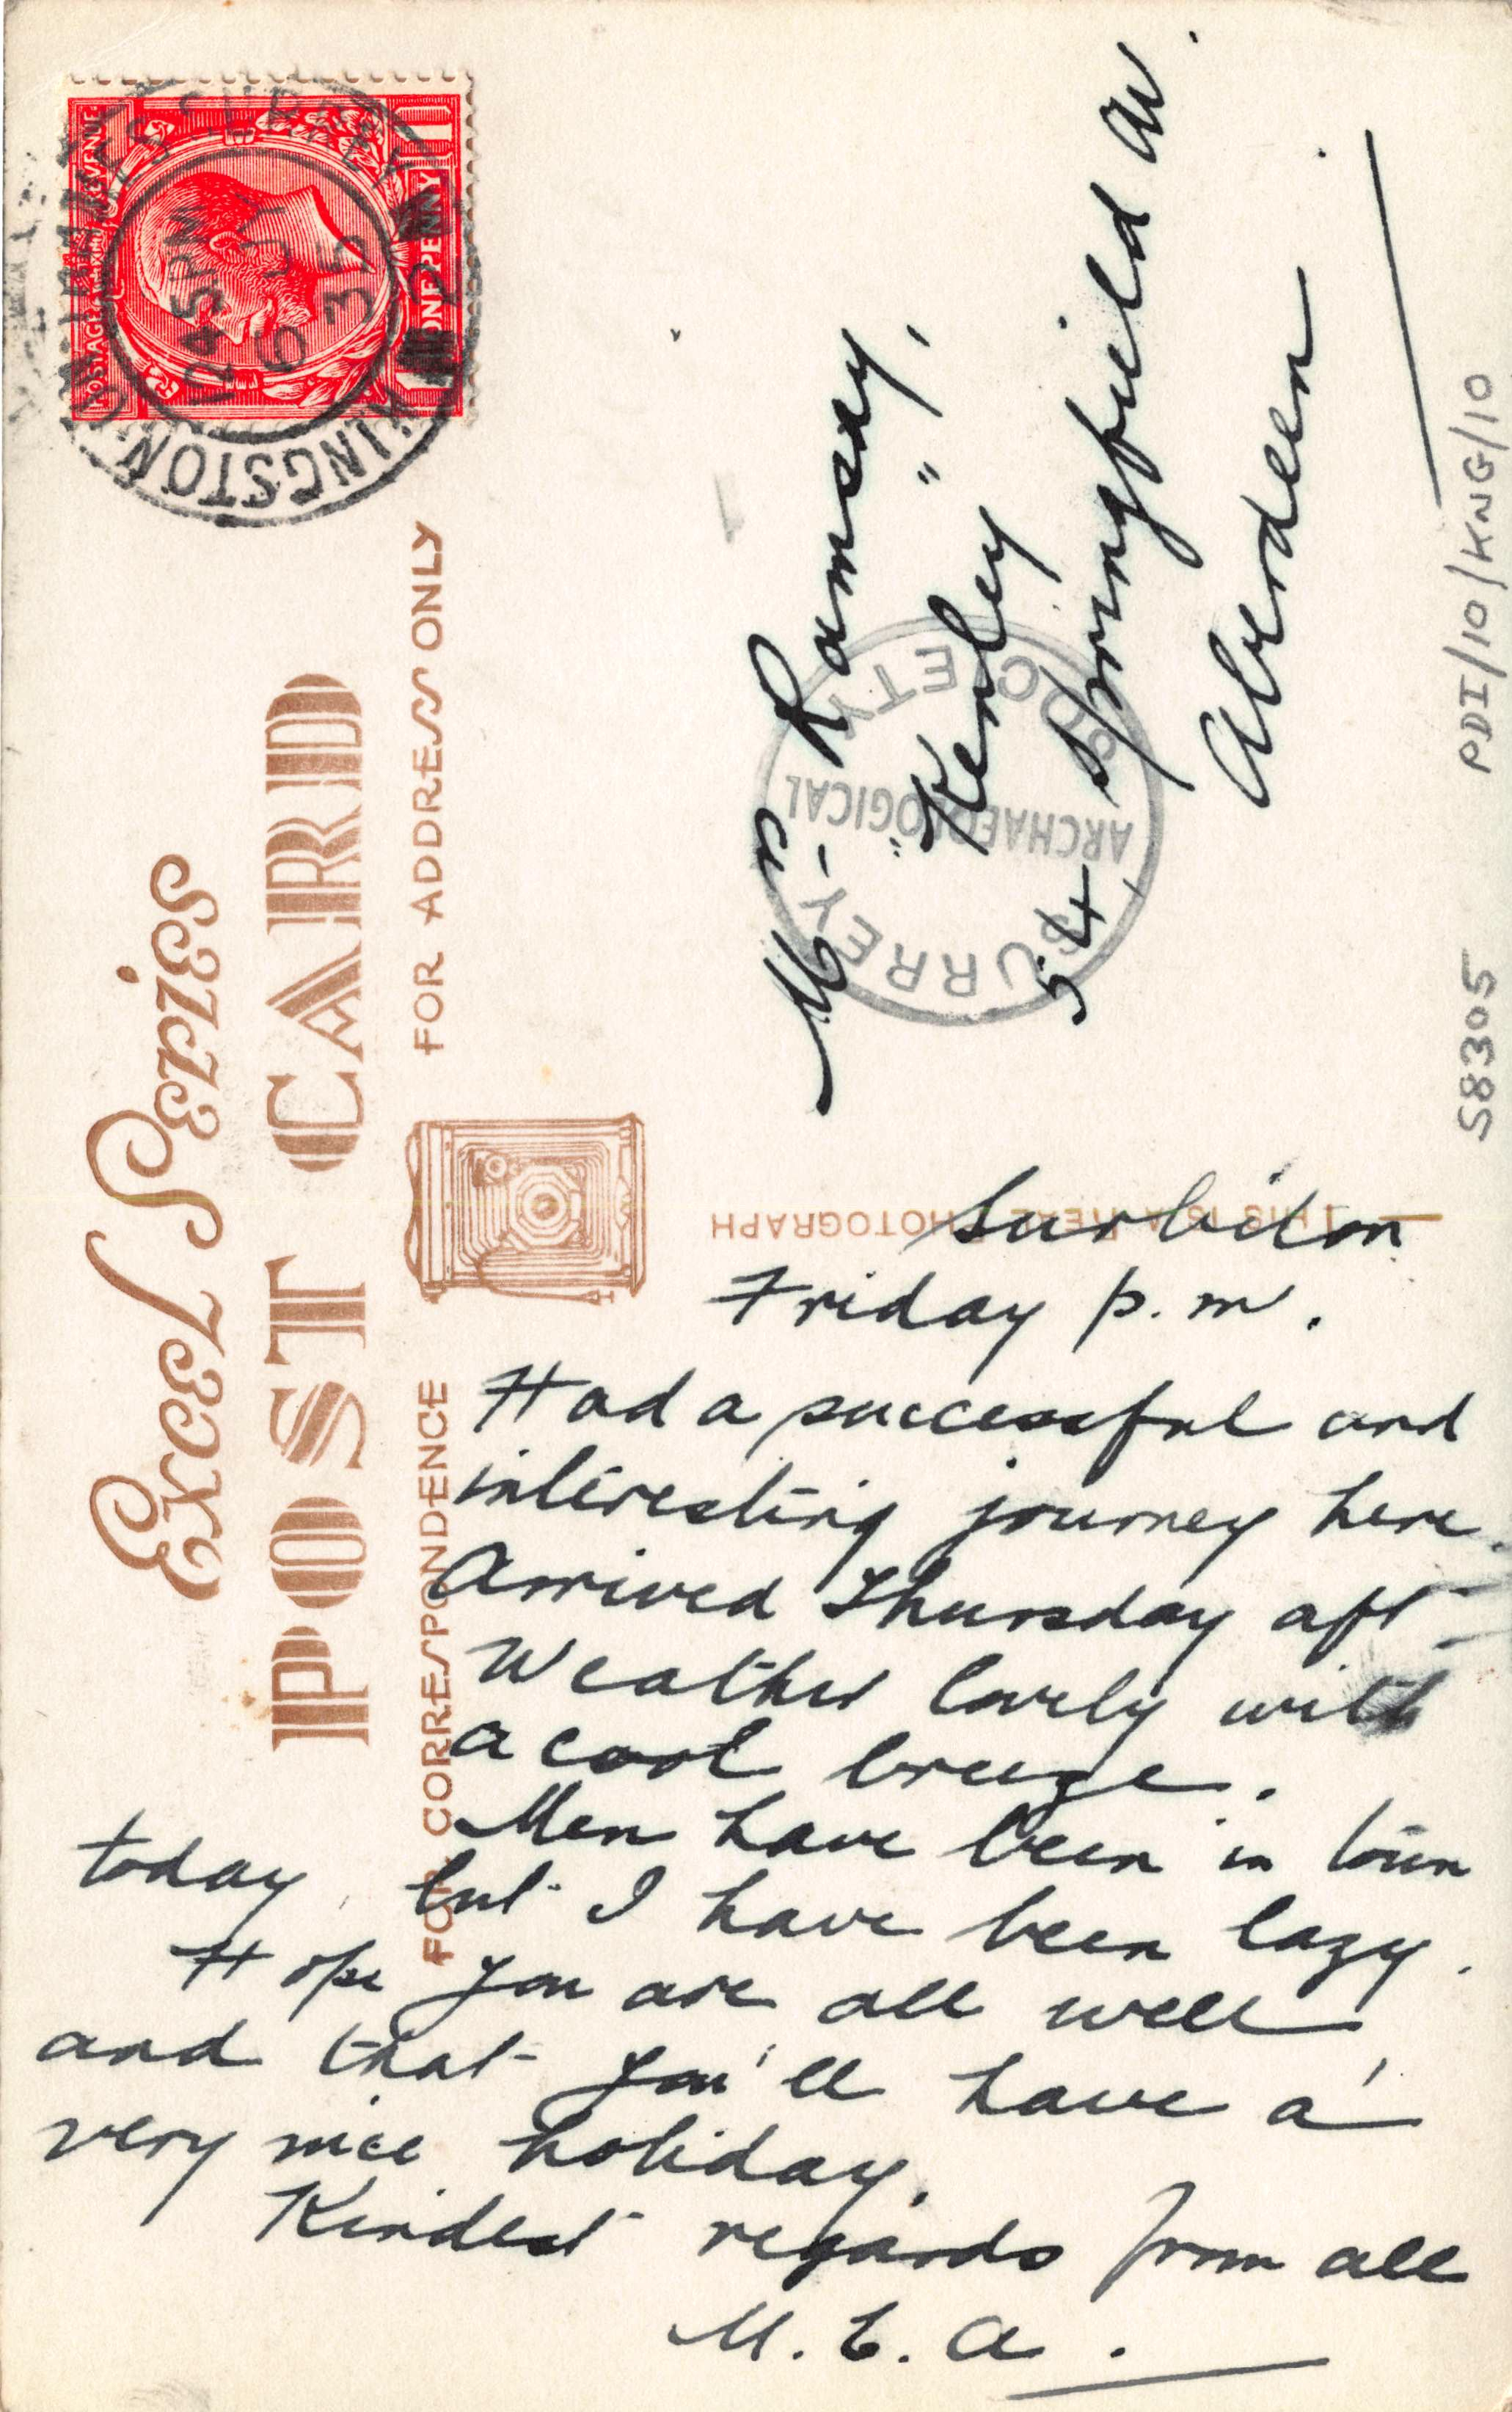 Excel Series
POST CARD
FOR CORRESPONDENCE
FOR ADDRESS ONLY
THIS IS A REAL PHOTOGRAPH
POSTAGE REVENUE
ONE PENNY
KINGSTON-ON-THAMES SURREY
12 45 PM
6 JY
35
Surbiton
Friday p.m.
Had a successful and
interesting journey here.
Arrived Thursday aft
Weather lovely with
a cool breeze.
Men have been in town
today, but I have been lazy.
Hope you are all well
and that you'll have a
very nice holiday.
Kindest regards from all
M. E. A.
Mrs Ramsay,
"Kenley",
54 Springfield Av.
Aberdeen.
SURREY ARCHAEOLOGICAL SOCIETY
S8305
PDI/10/KNG/10